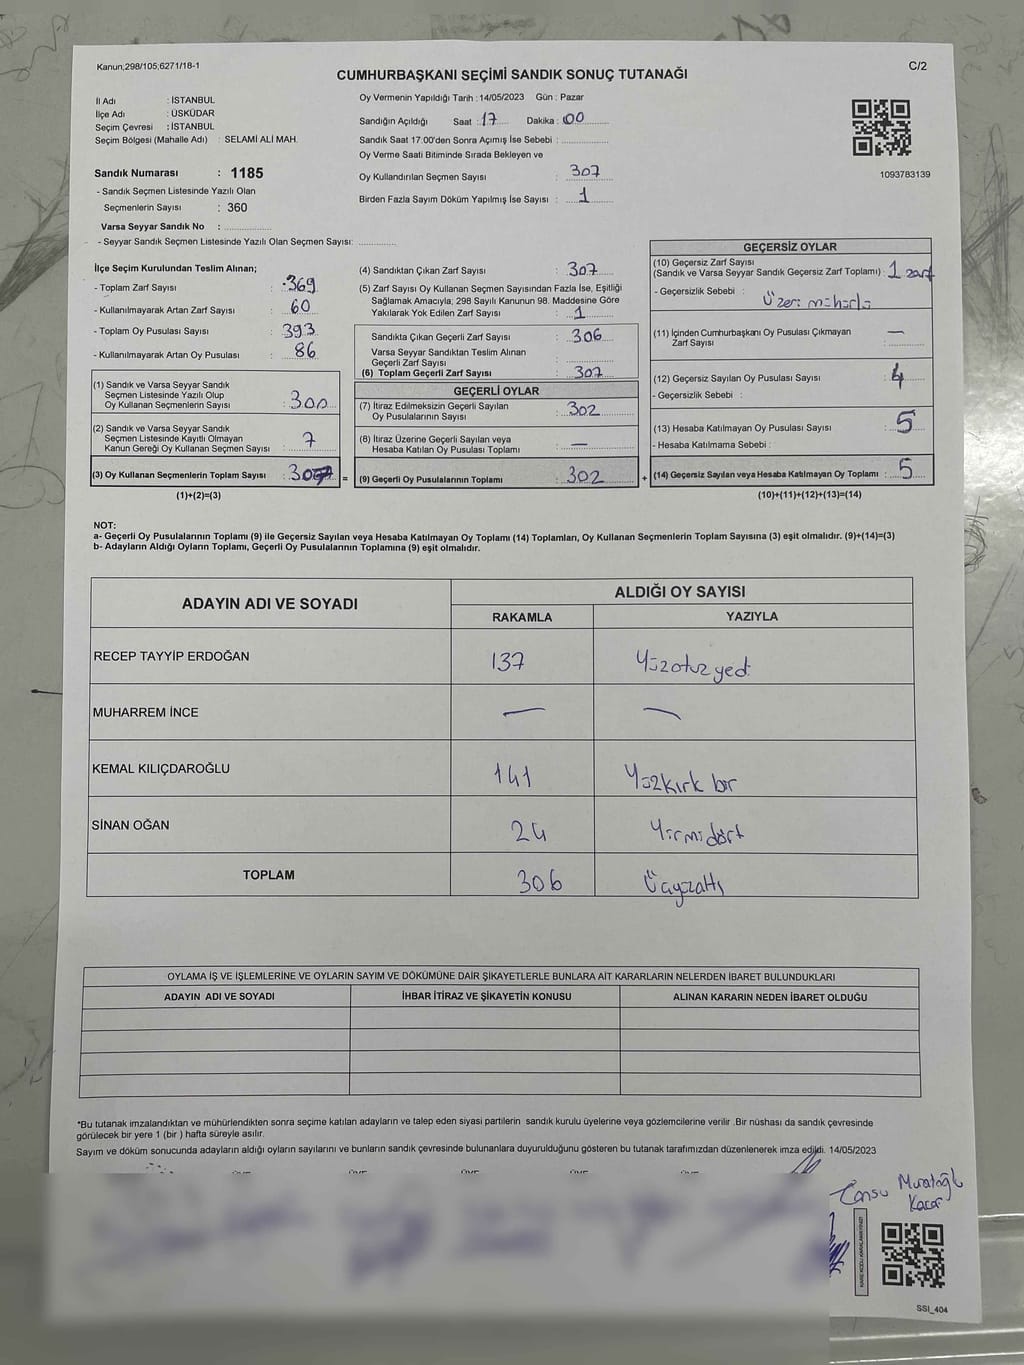 Kanun;298/105;6271/18-1
C/2
CUMHURBAŞKANI SEÇİMİ SANDIK SONUÇ TUTANAĞI
İl Adı : İSTANBUL
İlçe Adı : ÜSKÜDAR
Seçim Çevresi : İSTANBUL
Seçim Bölgesi (Mahalle Adı) : SELAMİ ALİ MAH.
Sandık Numarası : 1185
- Sandık Seçmen Listesinde Yazılı Olan
Seçmenlerin Sayısı : 360
Varsa Seyyar Sandık No :
- Seyyar Sandık Seçmen Listesinde Yazılı Olan Seçmen Sayısı:
Oy Vermenin Yapıldığı Tarih : 14/05/2023 Gün : Pazar
Sandığın Açıldığı Saat : 17 Dakika : 00
Sandık Saat 17.00'den Sonra Açımış İse Sebebi :
Oy Verme Saati Bitiminde Sırada Bekleyen ve
Oy Kullandırılan Seçmen Sayısı : 307
Birden Fazla Sayım Döküm Yapılmış İse Sayısı : 1
1093783139
İlçe Seçim Kurulundan Teslim Alınan;
- Toplam Zarf Sayısı : 369
- Kullanılmayarak Artan Zarf Sayısı : 60
- Toplam Oy Pusulası Sayısı : 393
- Kullanılmayarak Artan Oy Pusulası : 86
(1) Sandık ve Varsa Seyyar Sandık
Seçmen Listesinde Yazılı Olup
Oy Kullanan Seçmenlerin Sayısı : 300
(2) Sandık ve Varsa Seyyar Sandık
Seçmen Listesinde Kayıtlı Olmayan
Kanun Gereği Oy Kullanan Seçmen Sayısı : 7
(3) Oy Kullanan Seçmenlerin Toplam Sayısı : 307 =
(1)+(2)=(3)
(4) Sandıktan Çıkan Zarf Sayısı : 307
(5) Zarf Sayısı Oy Kullanan Seçmen Sayısından Fazla İse, Eşitliği
Sağlamak Amacıyla; 298 Sayılı Kanunun 98. Maddesine Göre
Yakılarak Yok Edilen Zarf Sayısı : 1
Sandıkta Çıkan Geçerli Zarf Sayısı : 306
Varsa Seyyar Sandıktan Teslim Alınan
Geçerli Zarf Sayısı :
(6) Toplam Geçerli Zarf Sayısı : 307
GEÇERLİ OYLAR
(7) İtiraz Edilmeksizin Geçerli Sayılan
Oy Pusulalarının Sayısı : 302
(8) İtiraz Üzerine Geçerli Sayılan veya
Hesaba Katılan Oy Pusulası Toplamı : —
(9) Geçerli Oy Pusulalarının Toplamı : 302 +
GEÇERSİZ OYLAR
(10) Geçersiz Zarf Sayısı
(Sandık ve Varsa Seyyar Sandık Geçersiz Zarf Toplamı) : 1 zarf
- Geçersizlik Sebebi : Üzeri mühürlü
(11) İçinden Cumhurbaşkanı Oy Pusulası Çıkmayan
Zarf Sayısı : —
(12) Geçersiz Sayılan Oy Pusulası Sayısı : 4
- Geçersizlik Sebebi :
(13) Hesaba Katılmayan Oy Pusulası Sayısı : 5
- Hesaba Katılmama Sebebi :
(14) Geçersiz Sayılan veya Hesaba Katılmayan Oy Toplamı : 5
(10)+(11)+(12)+(13)=(14)
NOT:
a- Geçerli Oy Pusulalarının Toplamı (9) ile Geçersiz Sayılan veya Hesaba Katılmayan Oy Toplamı (14) Toplamları, Oy Kullanan Seçmenlerin Toplam Sayısına (3) eşit olmalıdır. (9)+(14)=(3)
b- Adayların Aldığı Oyların Toplamı, Geçerli Oy Pusulalarının Toplamına (9) eşit olmalıdır.
ADAYIN ADI VE SOYADI
ALDIĞI OY SAYISI
RAKAMLA YAZIYLA
RECEP TAYYİP ERDOĞAN 137 Yüzotuzyedi
MUHARREM İNCE — —
KEMAL KILIÇDAROĞLU 141 Yüzkırk bir
SİNAN OĞAN 24 Yirmidört
TOPLAM 306 Üçyüzaltı
OYLAMA İŞ VE İŞLEMLERİNE VE OYLARIN SAYIM VE DÖKÜMÜNE DAİR ŞİKAYETLERLE BUNLARA AİT KARARLARIN NELERDEN İBARET BULUNDUKLARI
ADAYIN ADI VE SOYADI İHBAR İTİRAZ VE ŞİKAYETİN KONUSU ALINAN KARARIN NEDEN İBARET OLDUĞU
*Bu tutanak imzalandıktan ve mühürlendikten sonra seçime katılan adayların ve talep eden siyasi partilerin sandık kurulu üyelerine veya gözlemcilerine verilir .Bir nüshası da sandık çevresinde
görülecek bir yere 1 (bir ) hafta süreyle asılır.
Sayım ve döküm sonucunda adayların aldığı oyların sayılarını ve bunların sandık çevresinde bulunanlara duyurulduğunu gösteren bu tutanak tarafımızdan düzenlenerek imza edildi. 14/05/2023
Cansu Muratoğlu
Kacar
KARE KODU KARALAMAYINIZ!
SSI_404